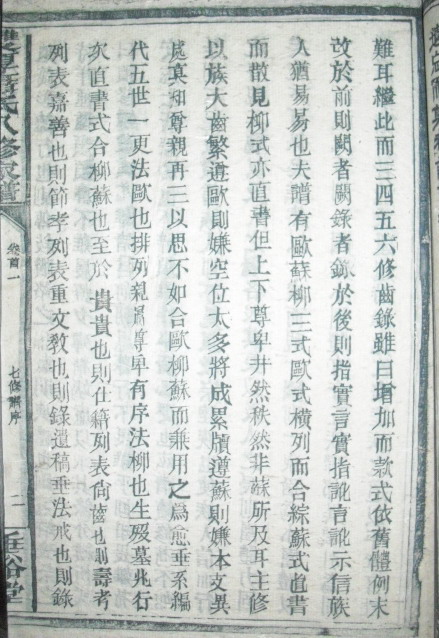 難耳繼此而三四五六修齒錄雖曰增加而款式依舊體例未
改於前則闕者闕錄者錄於後則指實言實指訛言訛示信族
人猶易易也夫譜有歐蘇柳三式歐式橫列而合綜蘇式直書
而散見柳式亦直書但上下尊卑井然秩然非蘇所及耳主修
以族大齒繁遵歐則嫌空位太多將成累牘遵蘇則嫌本支異
處莫知尊親再三以思不如合歐柳蘇而兼用之為愈垂系編
代五世一更法歐也排列親屬尊卑有序法柳也生歿墓兆行
次直書式合柳蘇也至於貴貴也則仕籍列表尙齒也則壽考
列表嘉善也則節孝列表重文敎也則錄遺稿垂法戒也則錄
氏八修家譜
卷首一
七修譜序
二
垂裕堂